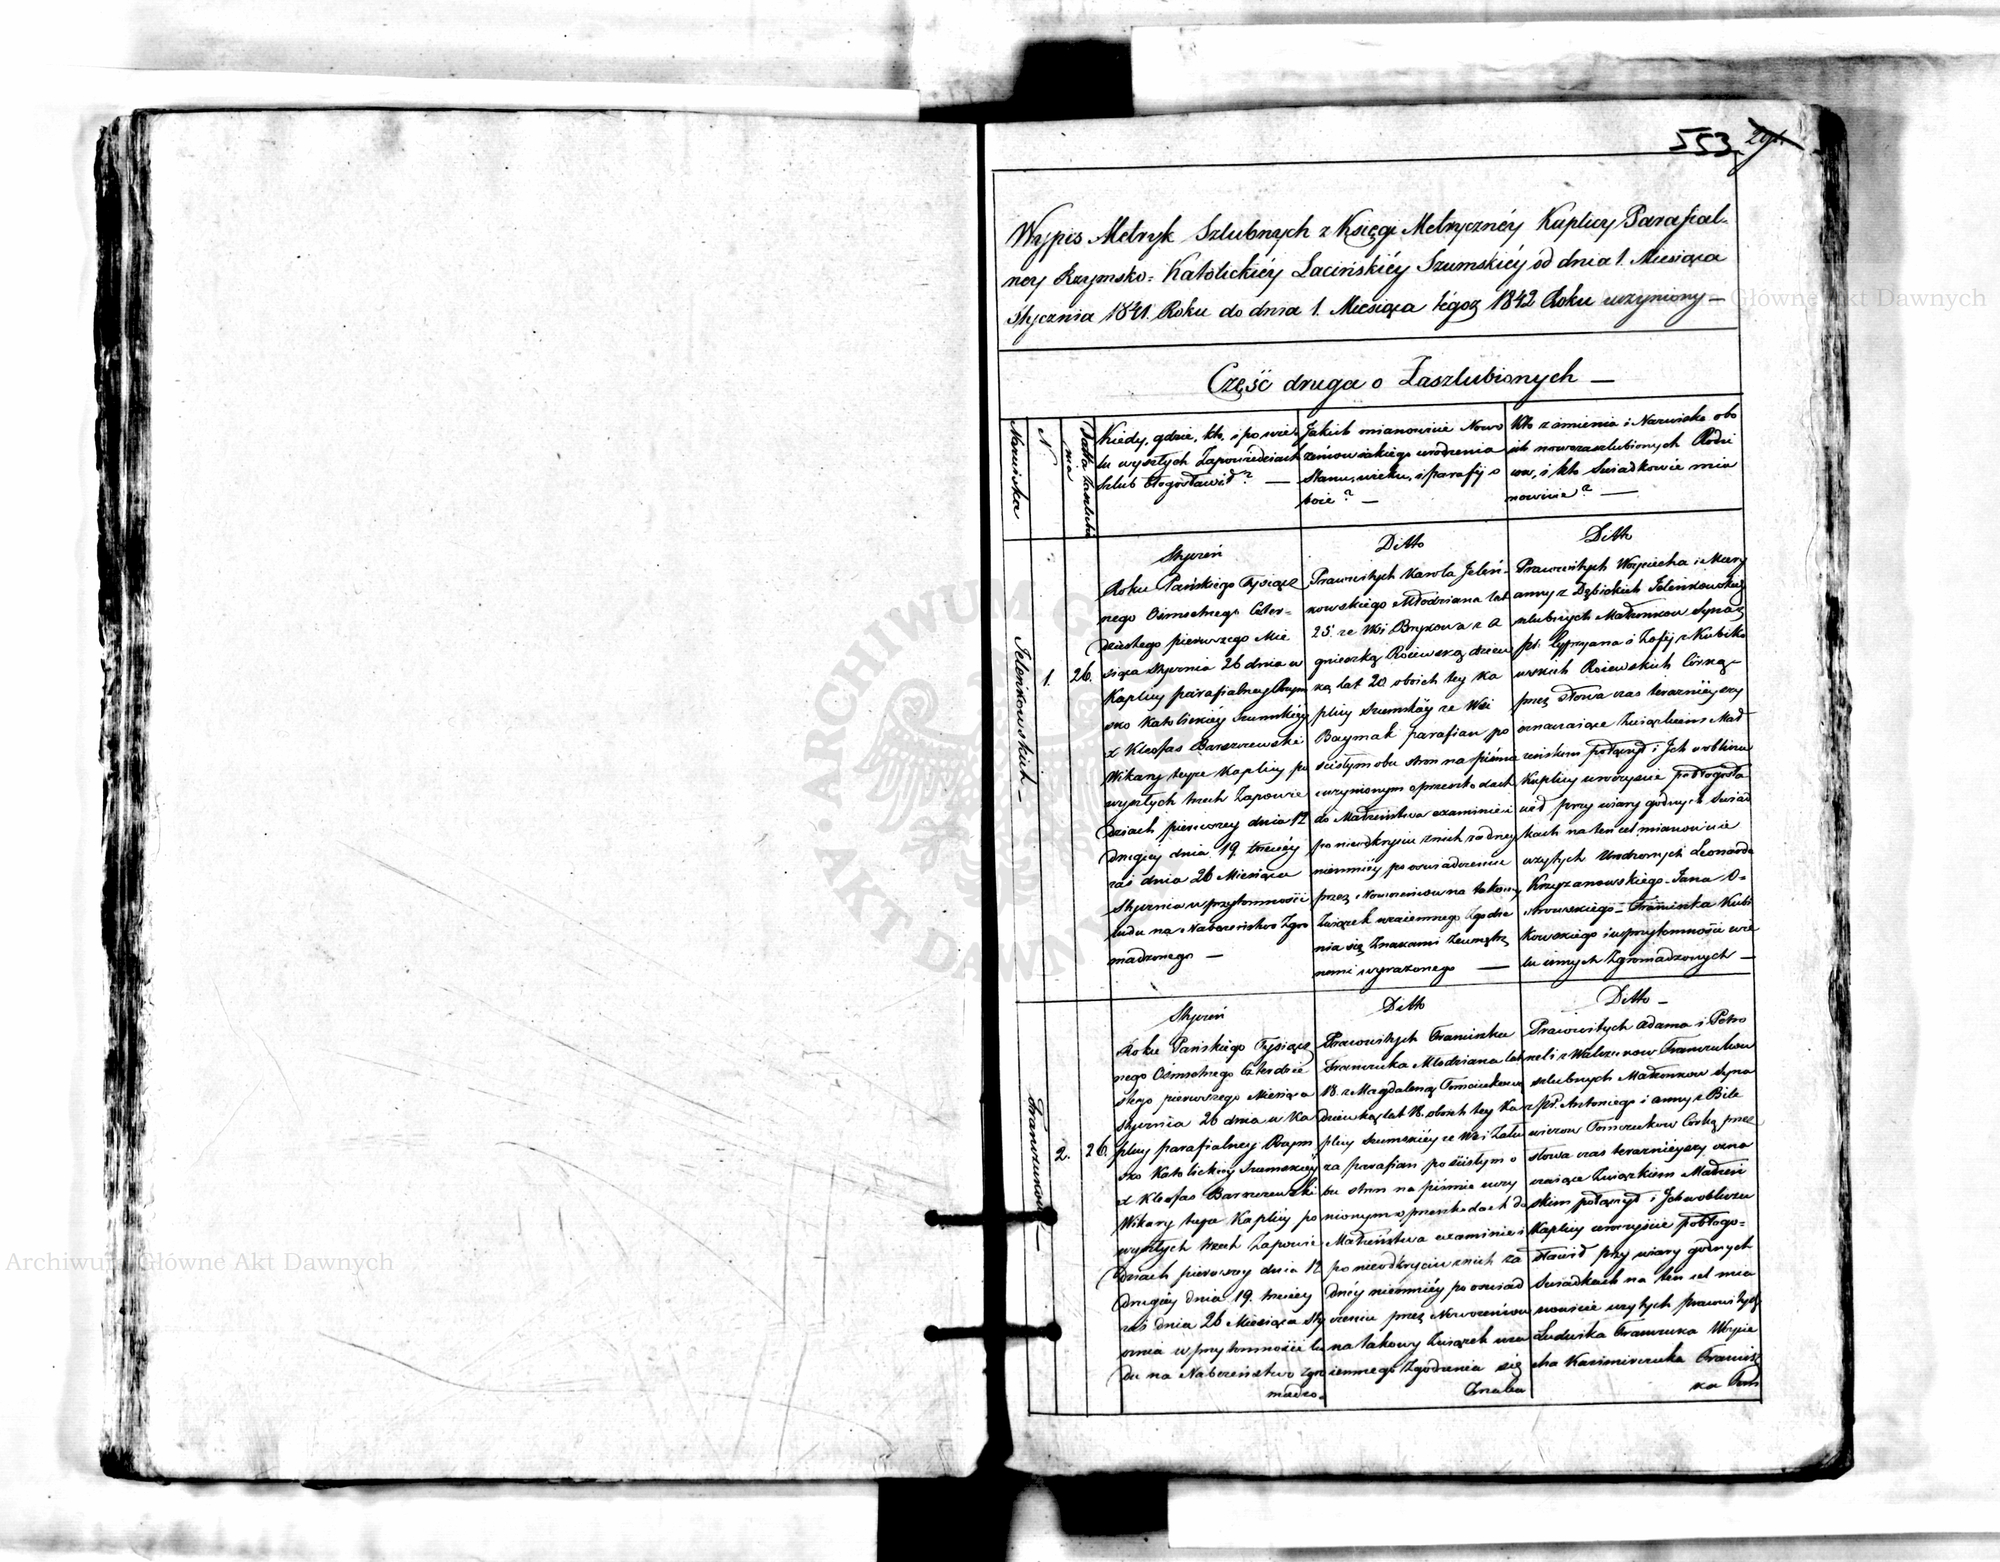 553
Wypis Metryk Szlubnych z Księgi Metrycznéy Kaplicy Parafial-
ney Rzymsko-Katolickiéy Łacińskiéy Szumskiéy od dnia 1. Miesiąca
Stycznia 1841. Roku do dnia 1. Miesiąca tégoż 1842 Roku uczyniony –
Część druga o Zaszlubionych –
Nazwiska
N
Datta zaszlubie
nia
Kiedy, gdzie, kto, i po wie-
lu wyszłych Zapowiedziach
szlub błogosławił? –
Jakich mianowicie Nowo
żeńcow iakiego urodzenia
Stanu, wieku, i parafij o
boie? –
Kto z imienia i Nazwiska obo
ich nowozaszlubionych Rodzi
ców, i kto Swiadkowie mia
nowicie? –
Jeleńkowskich –
1.
26.
Styczeń
Roku Pańskiego Tysiącz
nego Ośmsetnego Czter-
dziestego pierwszego Mie
siąca Stycznia 26 dnia w
Kaplicy parafialney Rzym
sko Katolickiéy Szumskiéy
X Kleofas Barszczewski
Wikary teyże Kaplicy po
wyszłych trzech Zapowie
dziach pierwszey dnia 12
drugiéy dnia 19. trzeciéy
zaś dnia 26 Miesiąca
Stycznia w przytomności
ludu na Nabożeństwo Zgro
madzonego –
Ditto
Prawowitych Karola Jeleń-
kowskiego Młodziana lat
25. ze Wsi Brykowa z A
gnieszką Rożewską dziew
ką lat 20 oboich tey Ka
plicy Szumskiéy ze Wsi
Baymak parafian po
ścisłym obu stron na piśmie
uczynionym o przeszkodach
do Małżeństwa examinie i
po nieodkryciu z nich żadney
niemniéy po oswiadczeniu
przez Nowożeńcow na takowy
Związek wzaiemnego Zgodze
nia się Znakami Zewnętrz
nemi wyrażonego –
Ditto
Prawowitych Woyciecha i Mary
anny z Dębickich Jeleńkowskich
szlubnych Małżonkow Syna z
pr. Cypryana i Zofij z Kubiko
wskich Rożewskich Córką –
przez słowa czas teraznieyszy
oznaczaiące Związkiem Mał
żeńskim połączył i Ich w obliczu
Kaplicy uroczyście pobłogosła
wił przy wiary godnych Swiad
kach na ten cel mianowicie
użytych Urodzonych Leonarda
Krzyżanowskiego – Jana O-
strowskiego – Franciszka Kubi
kowskiego i w przytomności wie
lu innych Zgromadzonych –
2.
26.
Styczeń
Roku Pańskiego Tysiącz
nego Ośmsetnego Czterdzie
stego pierwszego Miesiąca
Stycznia 26 dnia w Ka
plicy parafialney Rzym
sko Katolickiey Szumskiéy
X Kleofas Barszczewski
Wikary teyże Kaplicy po
wyszłych trzech Zapowie
dziach pierwszey dnia 12
drugiéy dnia 19. trzeciéy
zaś dnia 26 Miesiąca Sty
cznia w przytomności lu
du na Nabożeństwo Zgro
madzo-
Ditto
Prawowitych Franciszka
Franczuka Młodziana lat
18. z Magdaleną Tomczukową
dziewką lat 18. oboich tey Ka
plicy Szumskiéy ze Wsi Zału
ża parafian po ścisłym o
bu stron na piśmie uczy
nionym o przeszkodach do
Małżeństwa examinie i
po nieodkryciu z nich ża
dnéy niemniéy po oswiad
czeniu przez Nowożeńcow
na takowy Związek wza
iemnego Zgodzenia się
Znaka
Ditto –
Prawowitych Adama i Petro
neli z Walczukow Franczukow
szlubnych Małżonkow Syna
z pr. Antoniego i Anny z Bile
wiczow Tomczukow Córką przez
słowa czas teraznieyszy ozna
czaiące Związkiem Małżeń
skim połączył i Ich w obliczu
Kaplicy uroczyście pobłogo-
sławił przy wiary godnych
Swiadkach na ten cel mia
nowicie użytych prawowitych
Ludwika Franczuka Woycie
cha Kazimirczuka Francisz
ka Tom